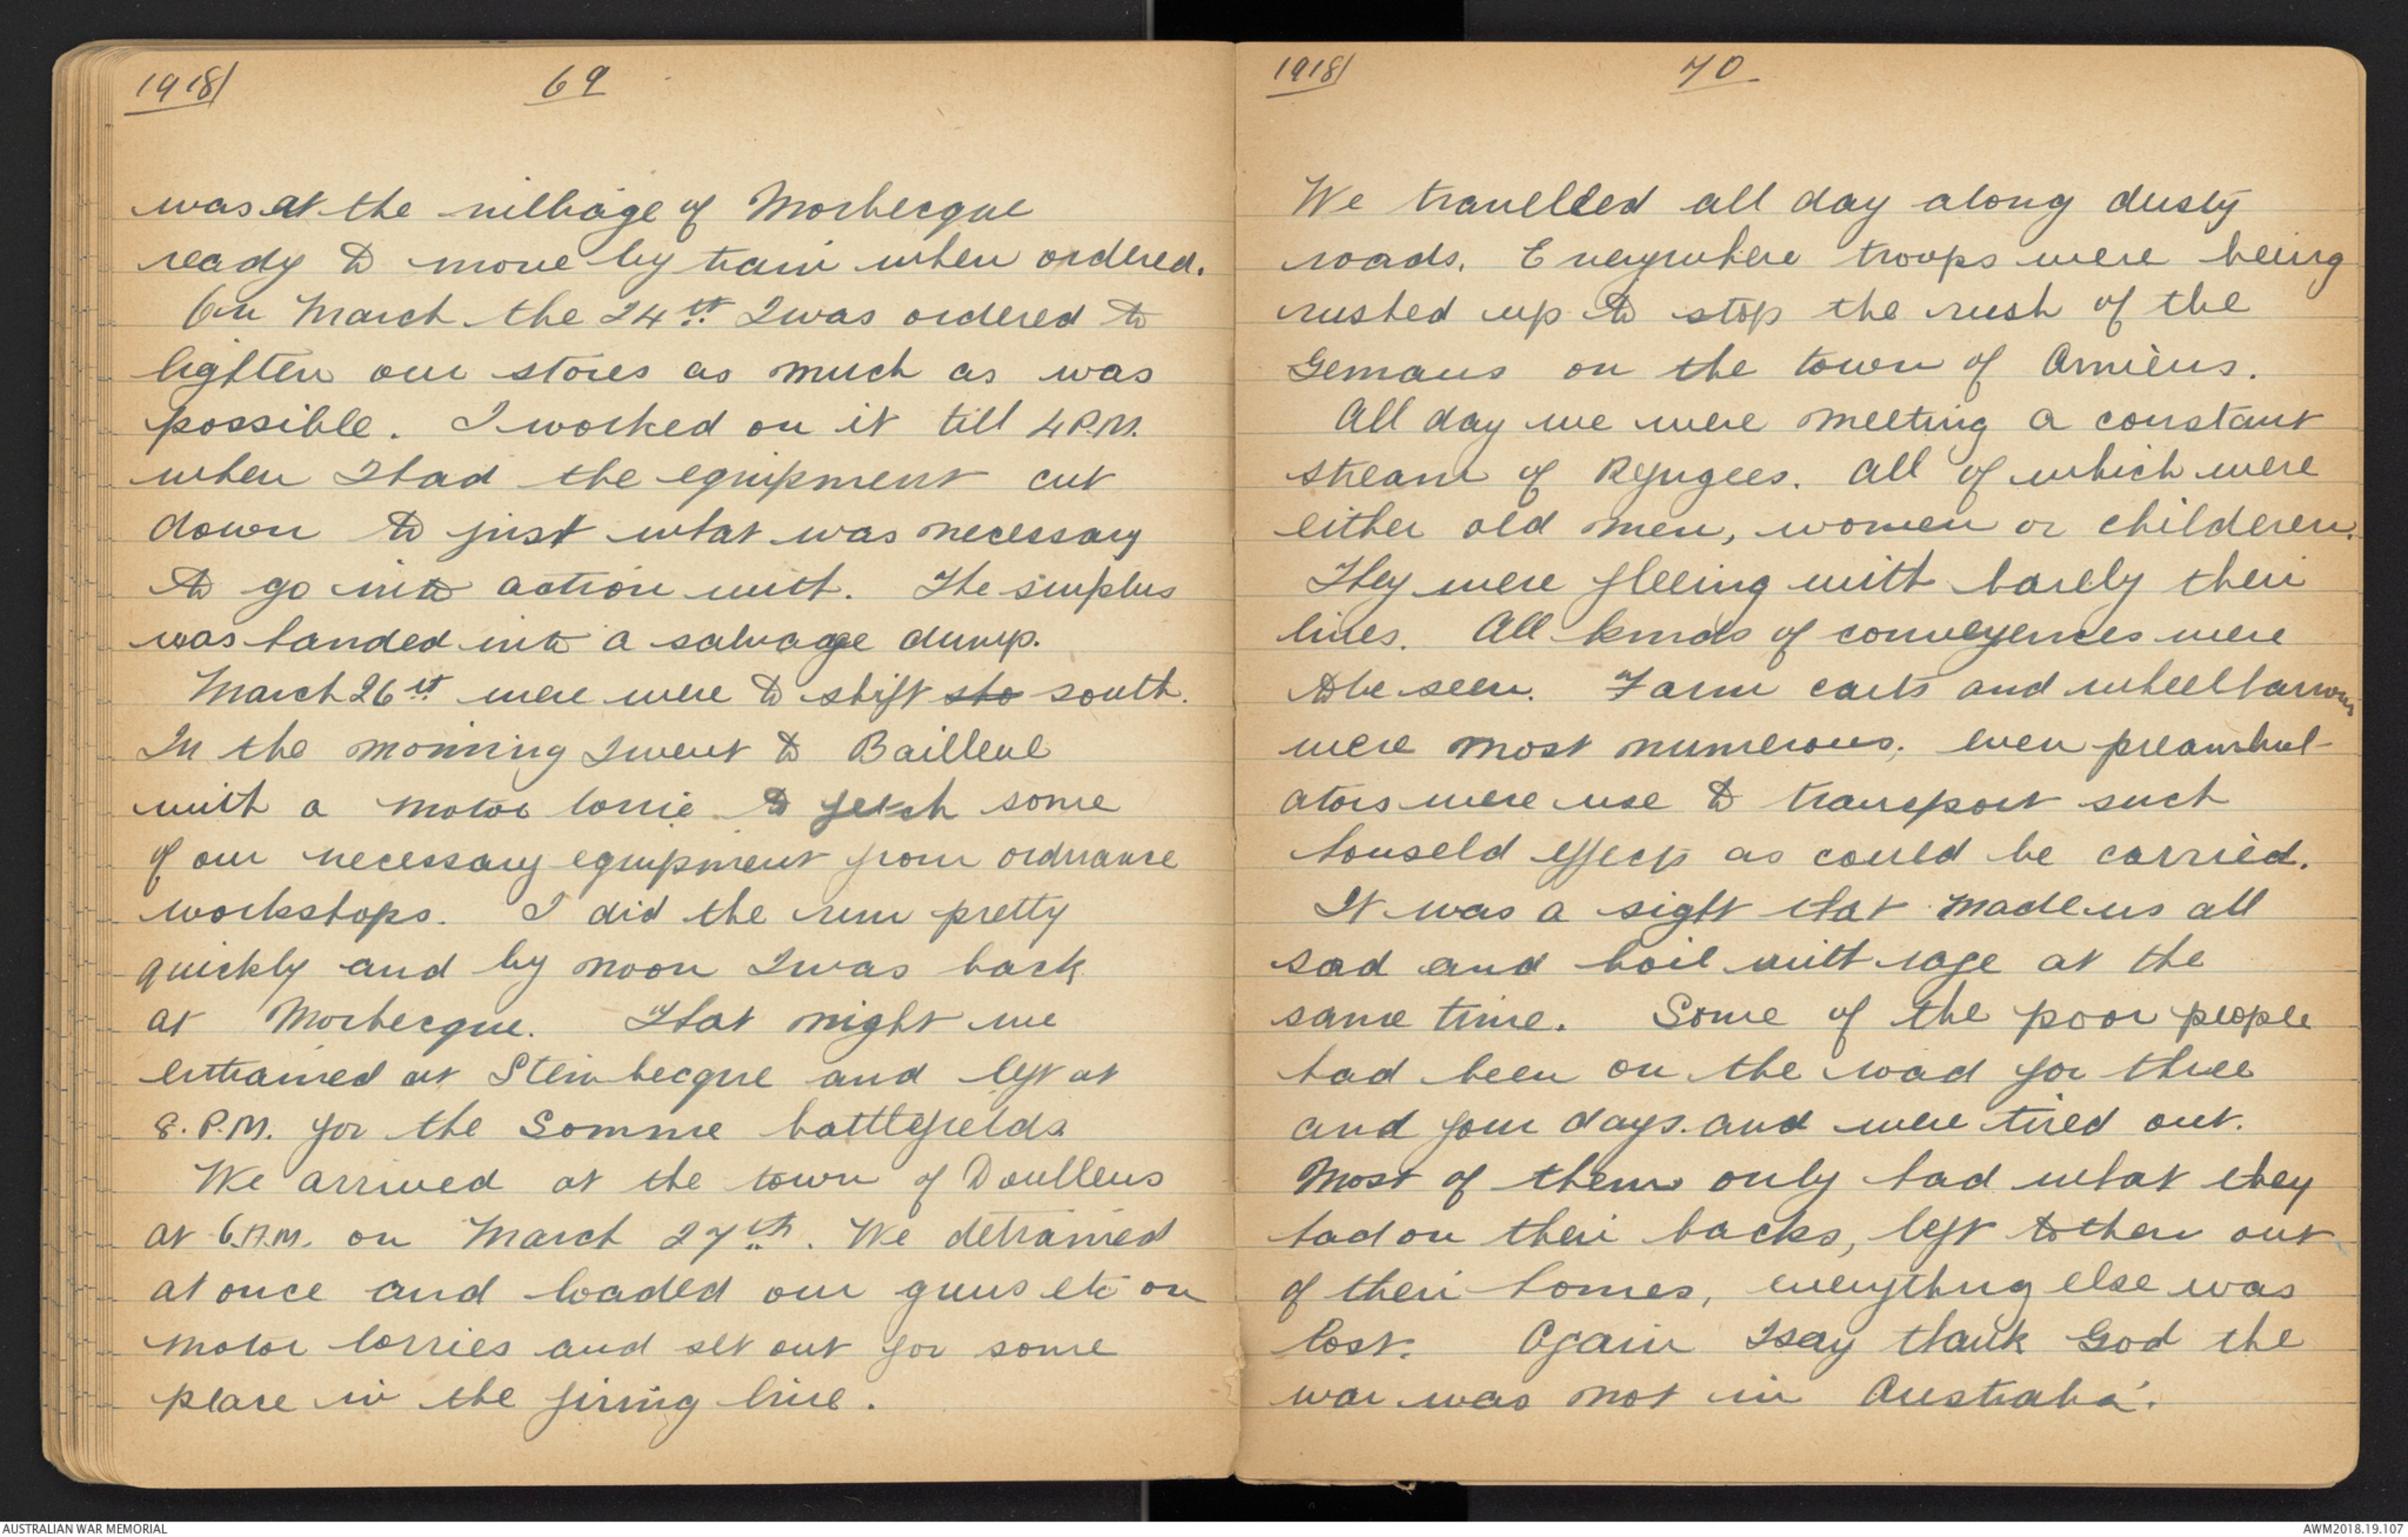 1918/ 69
was at the village of Morbecque
ready to move by train when ordered.
On March the 24th I was ordered to
lighten our stores as much as was
possible. I worked on it till 4 P.M.
when I had the equipment cut
down to just what was necessary
to go into action with. The surplus
was handed into a salvage dump.
March 26th were were to shift sto south.
In the morning I went to Bailleul
with a motor lorrie to fetch some
of our necessary equipment from ordnance
workshops. I did the run pretty
quickly and by noon I was back
at Morbecque. That night we
entrained at Steinbecque and left at
8. P.M. for the Somme battlefields
We arrived at the town of Doullens
at 6.A.M. on March 27th. We detrained
at once and loaded our guns etc on
motor lorries and set out for some
place in the firing line.
1918/ 70
We travelled all day along dusty
roads. Everywhere troops were being
rushed up to stop the rush of the
Gemans on the town of Amiens.
All day we were meeting a constant
stream of Refugees. All of which were
either old men, women or childeren.
They were fleeing with barely their
lives. All kinds of conveyences were
to be seen. Farm carts and wheelbarrows
were most numerous, even preambul-
ators were use to transport such
houseld effects as could be carried.
It was a sight that made us all
sad and boil with rage at the
same time. Some of the poor people
had been on the road for three
and four days. and were tired out.
Most of them only had what they
had on their backs, left to them out
of their homes, everything else was
lost. Again I say thank God the
war was not in Australia.
AUSTRALIAN WAR MEMORIAL
AWM2018.19.107